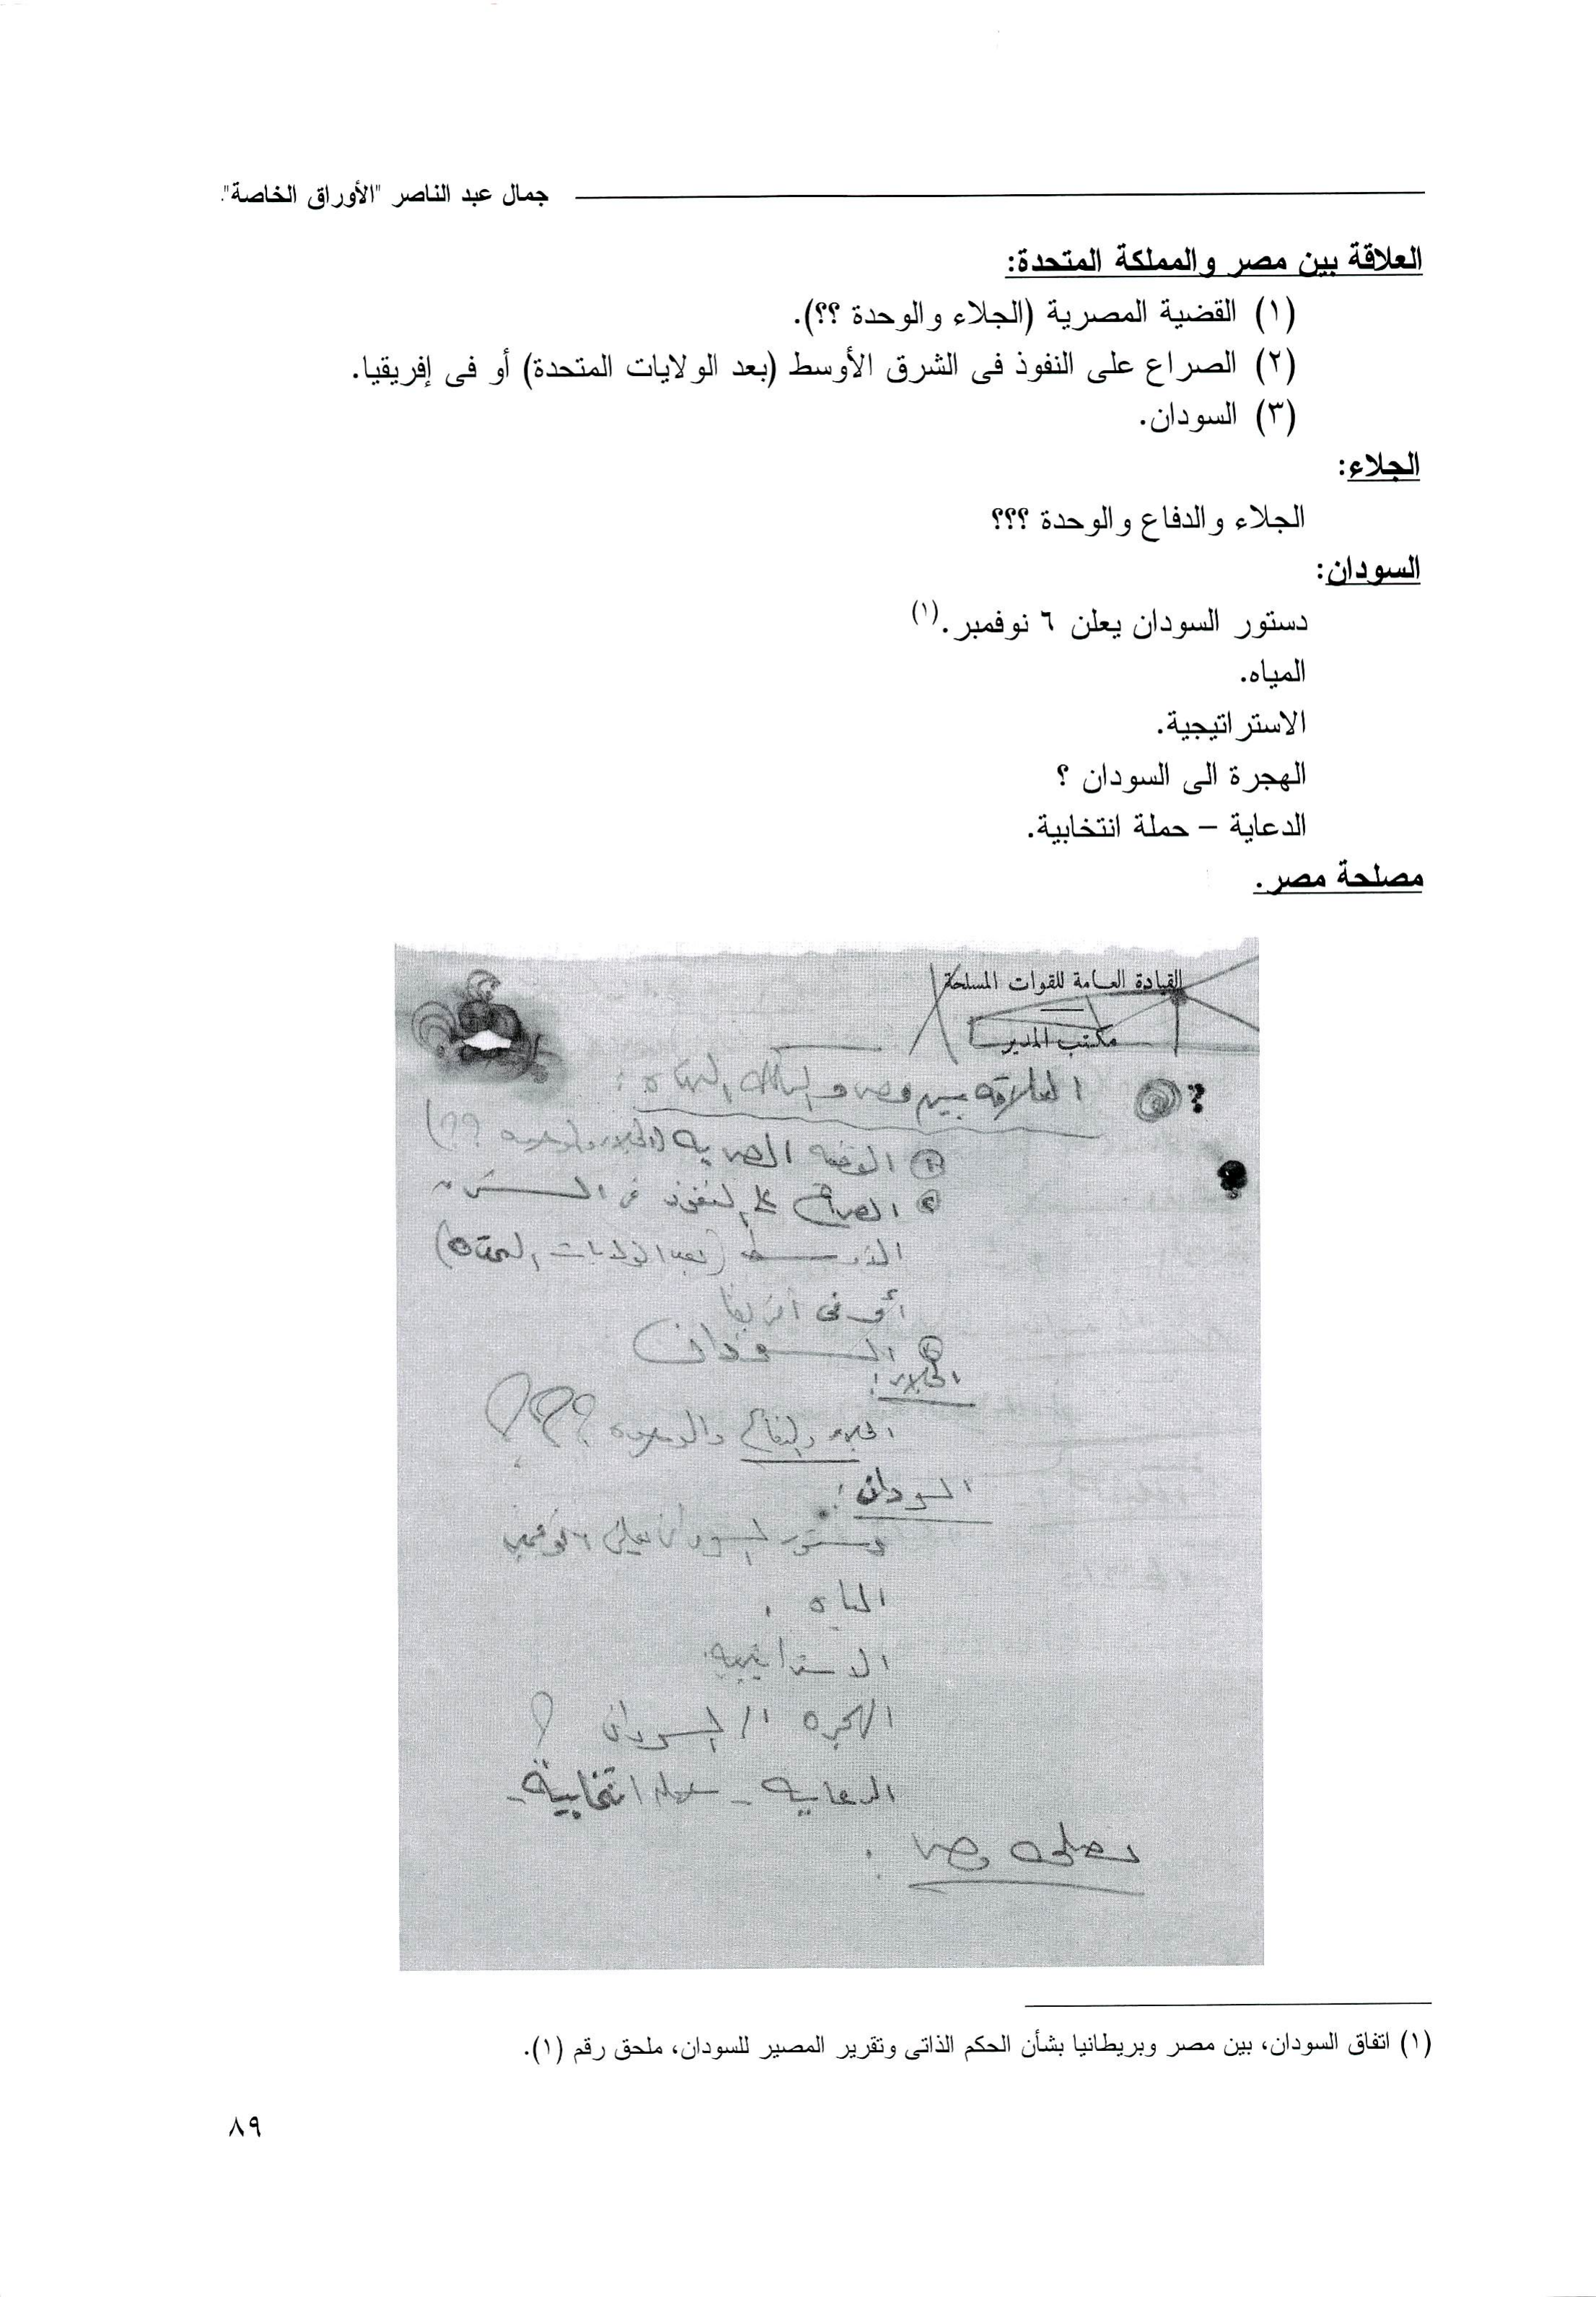 جمال عبد الناصر "الأوراق الخاصة".
العلاقة بين مصر والمملكة المتحدة:
(١) القضية المصرية (الجلاء والوحدة ؟؟).
(٢) الصراع على النفوذ فى الشرق الأوسط (بعد الولايات المتحدة) أو فى إفريقيا.
(٣) السودان.
الجلاء:
الجلاء والدفاع والوحدة ؟؟؟
السودان:
دستور السودان يعلن ٦ نوفمبر.(١)
المياه.
الاستراتيجية.
الهجرة الى السودان ؟
الدعاية – حملة انتخابية.
مصلحة مصر.
القيادة العامة للقوات المسلحة
مكتب المدير
؟ العلاقه بين مصر والمملكه المتحده :
(١) القضيه المصريه (الجلاء والوحده ؟؟)
(٢) الصراع على النفوذ فى الشرق
الأوسط (بعد الولايات المتحده)
أو فى افريقيا
(٣) السودان
الجلاء :
الجلاء والدفاع والوحده ؟؟؟
السودان :
دستور السودان يعلن ٦ نوفمبر
المياه .
الاستراتيجيه
الهجره الى السودان ؟
الدعايه - حمله انتخابية -
مصلحه مصر .
(١) اتفاق السودان، بين مصر وبريطانيا بشأن الحكم الذاتى وتقرير المصير للسودان، ملحق رقم (١).
٨٩